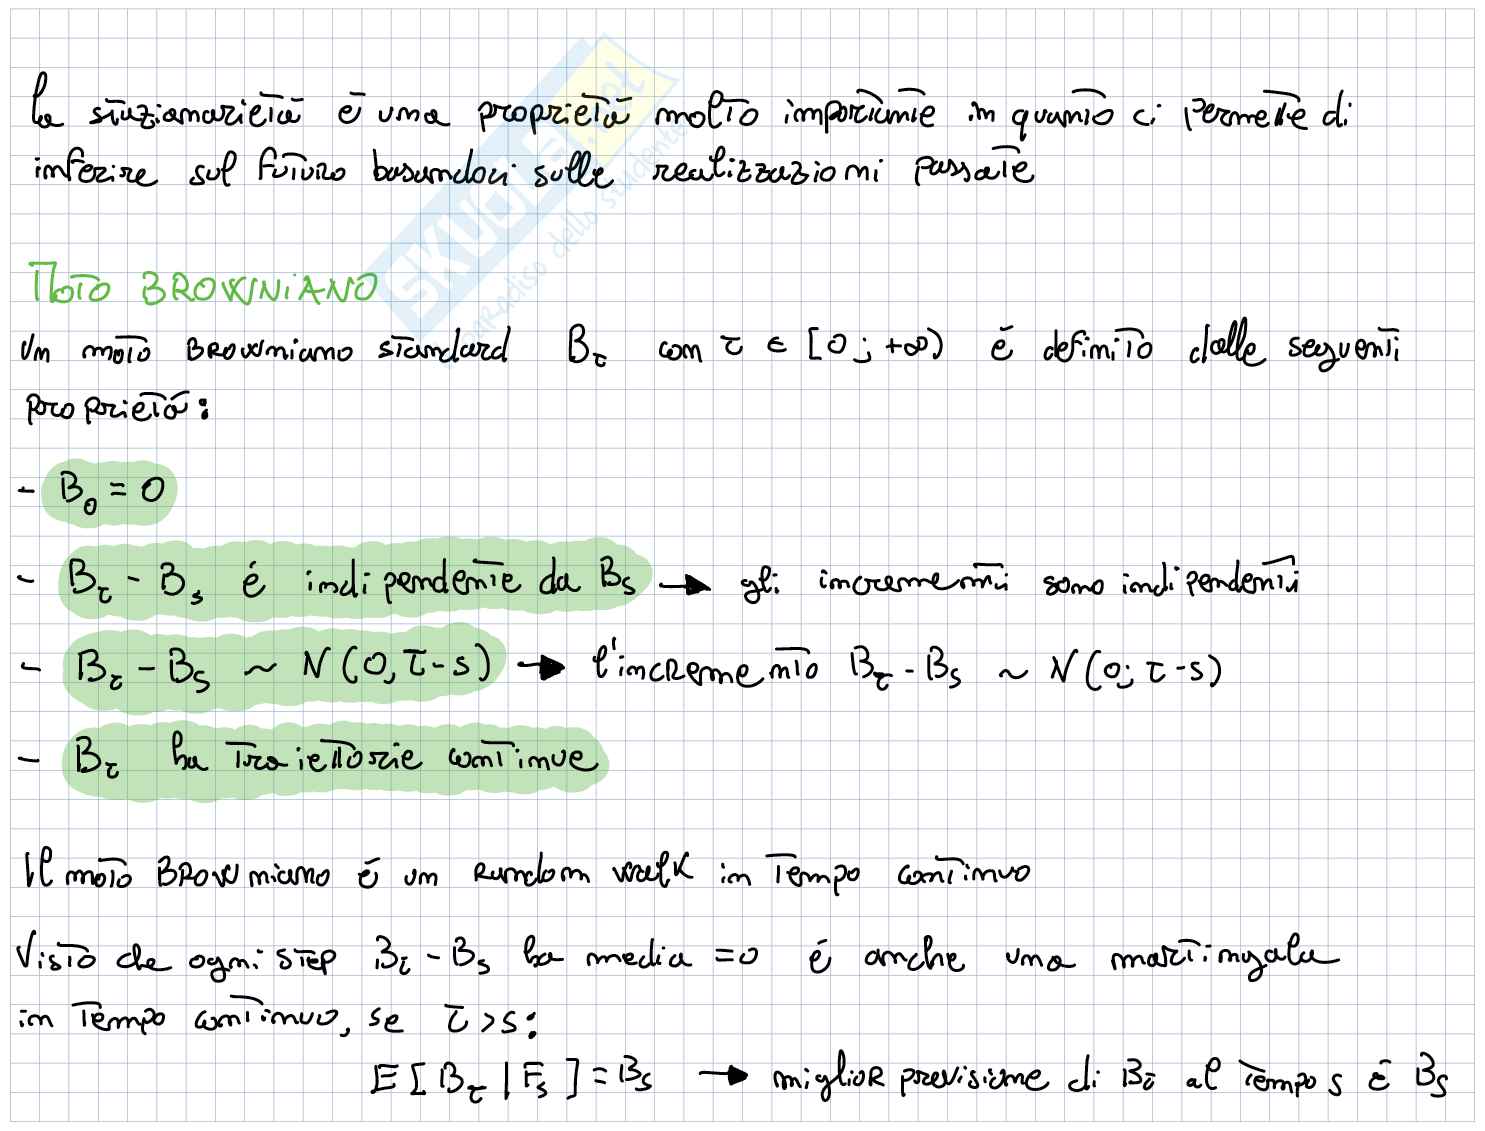 la stazionarietà è una proprietà molto importante in quanto ci permette di
inferire sul futuro basandoci sulle realizzazioni passate
MOTO BROWNIANO
Un moto BROWNiano standard B_t con t ∈ [0; +∞) è definito dalle seguenti
proprietà:
- B_0 = 0
- B_t - B_s è indipendente da B_s → gli incrementi sono indipendenti
- B_t - B_s ~ N(0, t-s) → l'incremento B_t - B_s ~ N(0; t-s)
- B_t ha traiettorie continue
Il moto BROWNiano è un Random walk in tempo continuo
Visto che ogni step B_t - B_s ha media = 0 è anche una martingala
in tempo continuo, se t > s:
E[B_t | F_s] = B_s → miglior previsione di B_t al tempo s è B_s
SKUOLA.net
paradiso dello studente